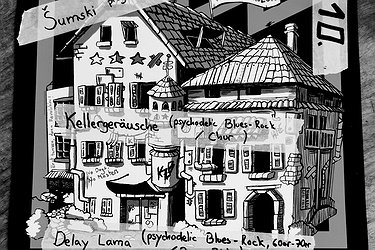 Šumski
10.
Kellergeräusche (psychodelic Blues-Rock
/ Chur )
Delay Lama (psychodelic Blues-Rock, 60er-70er